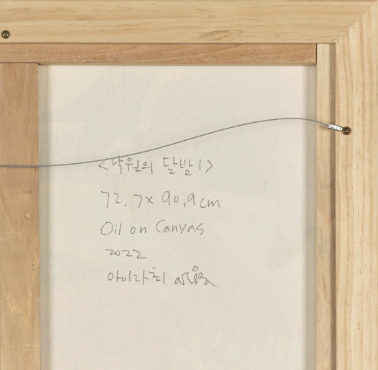 <낙원의 달밤 1>
72.7x 90.9cm
Oil on Canvas
2022
아이라최